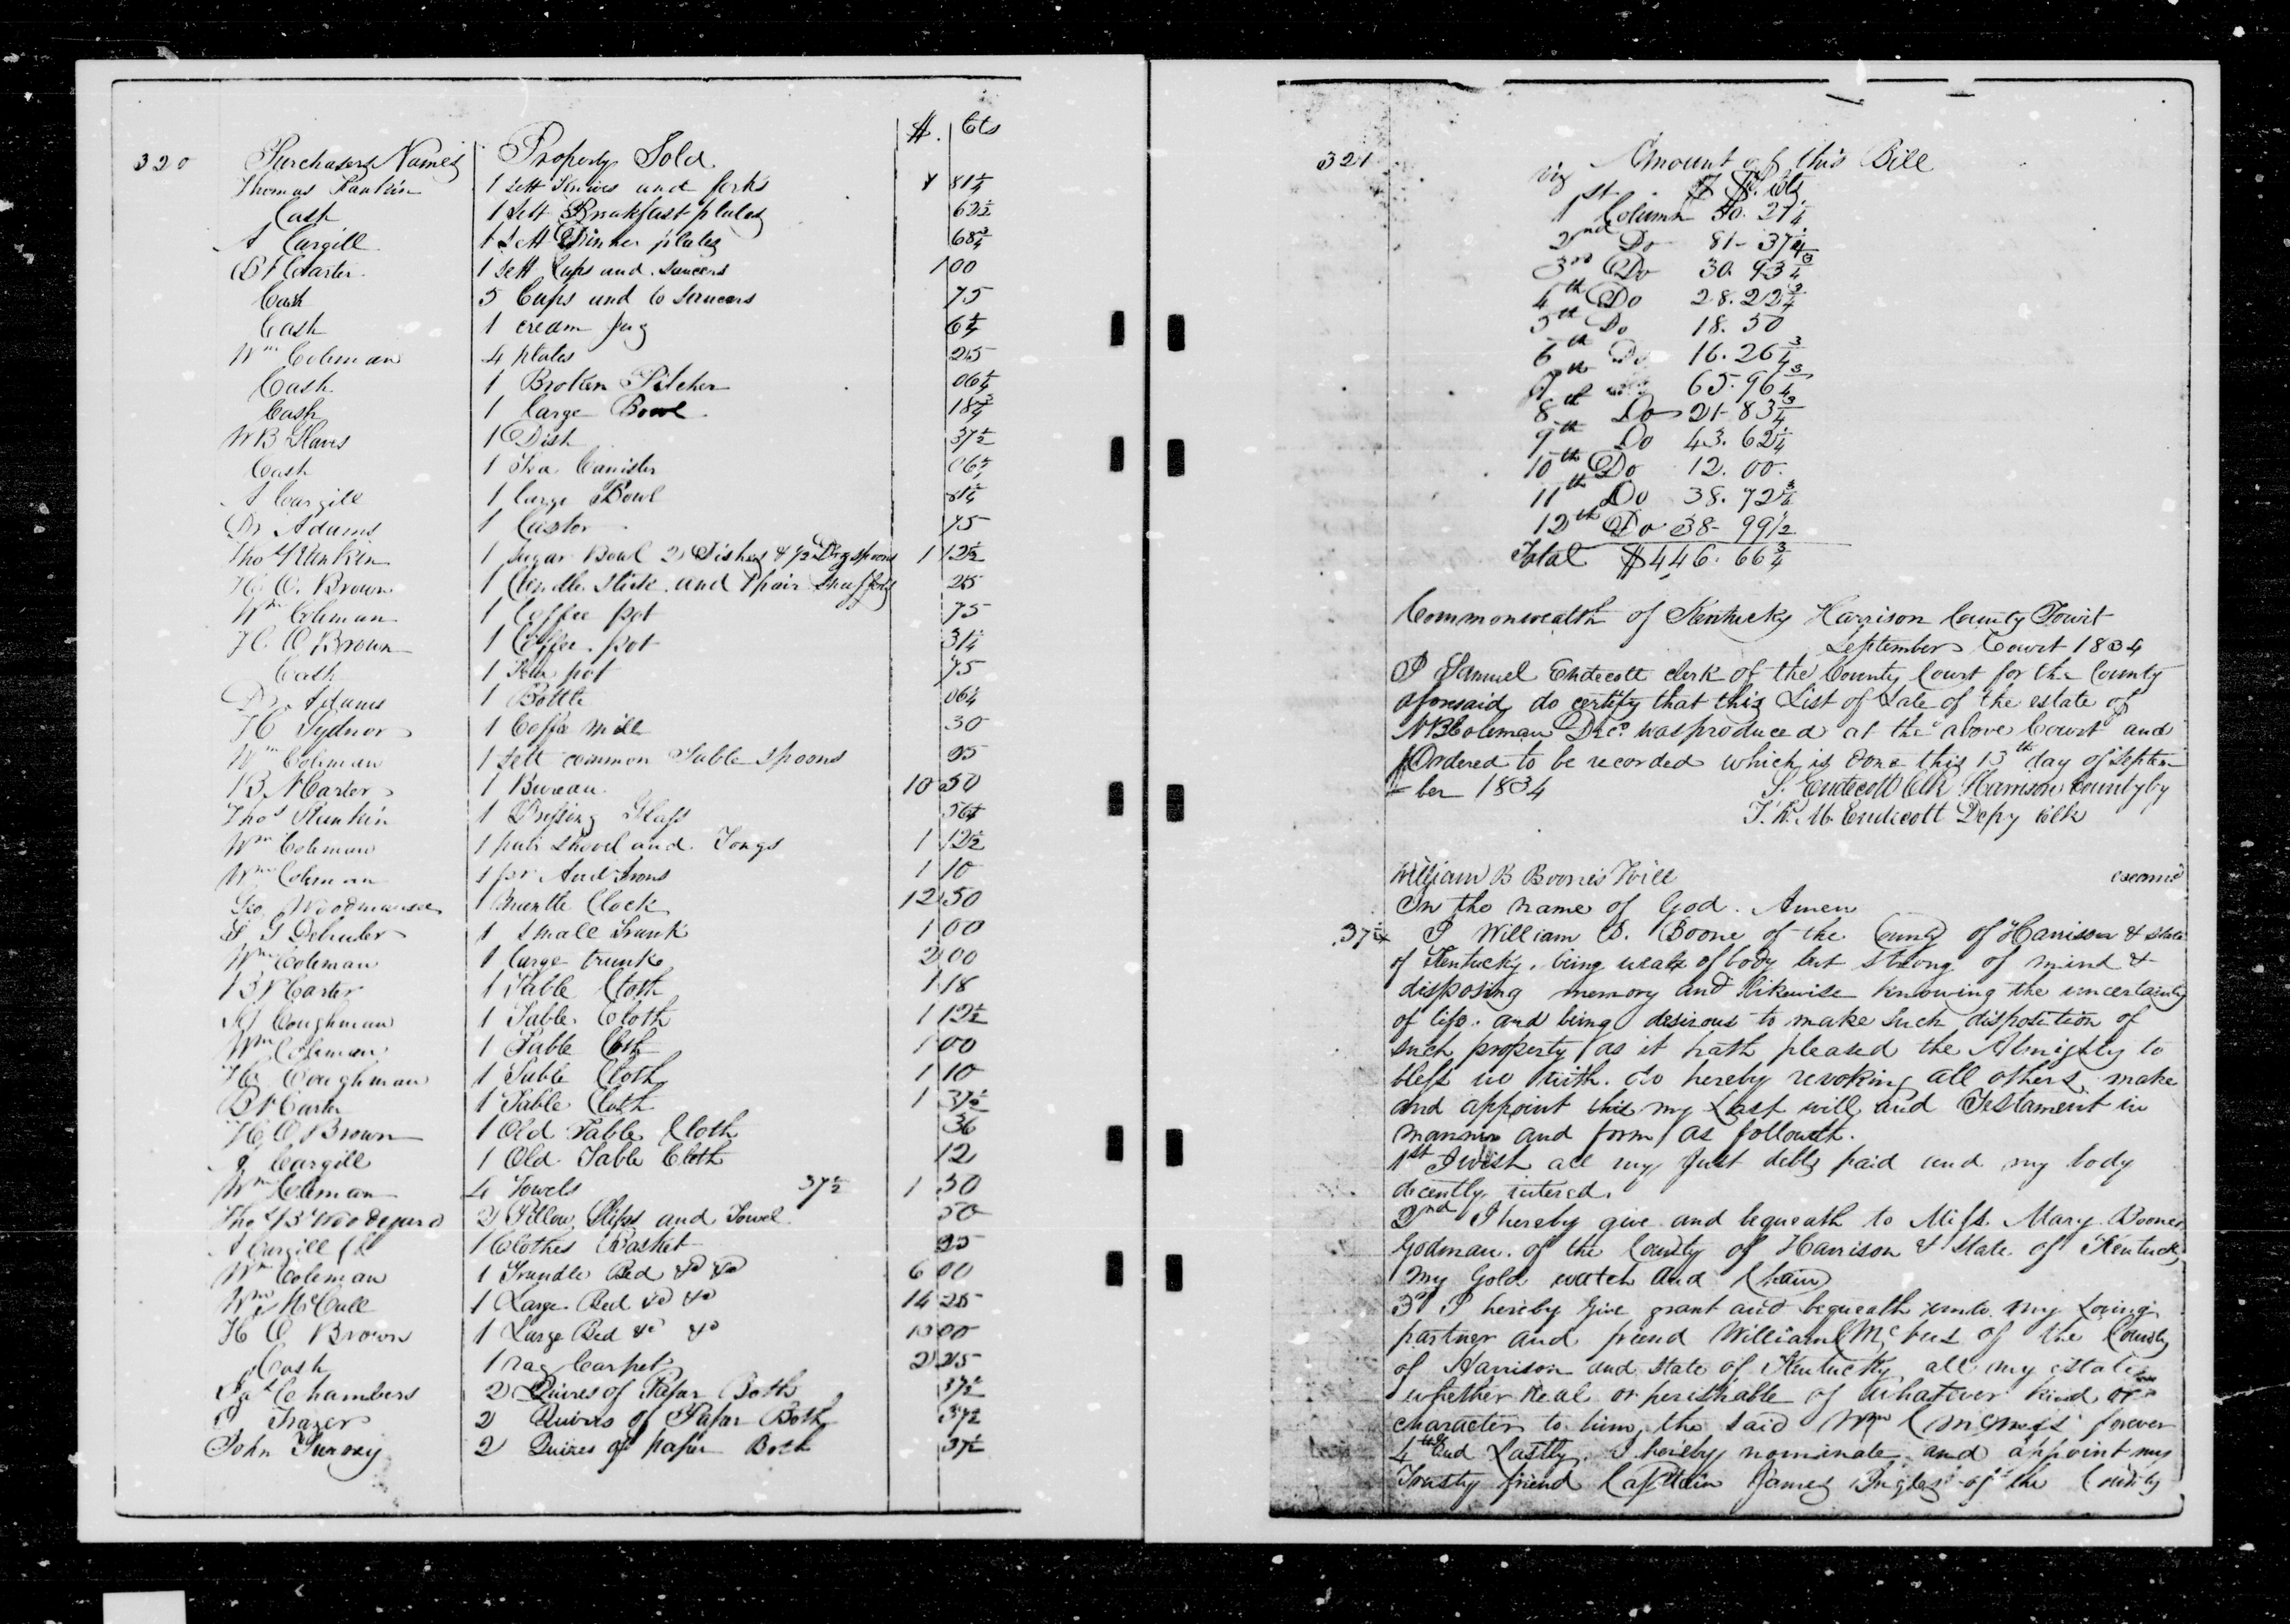 320 Purchasers Names Property Sold $. Cts
Thomas Rankin 1 sett Knives and forks 81¼
Cash 1 Sett Breakfast plates 62½
A Cargill 1 Sett Dinner plates 68¾
B N Carter 1 Sett Cups and saucers 1 00
Cash 5 Cups and 6 saucers 75
Cash 1 cream jug 6¼
Wm Coleman 4 plates 25
Cash 1 Broken Pitcher 06¼
Cash 1 Large Bowl 18¾
W B 1 Dish 37½
Cash 1 Tea Canister 06¼
A Cargill 1 large Bowl 31¼
Dr Adams 1 Castor 75
Thos Rankin 1 Sugar Bowl 2 Dishes & ½ Doz spoons 1 12½
H. O. Brown 1 Candle Stick and 1 pair Snuffers 25
Wm Coleman 1 Coffee pot 75
H. O Brown 1 Coffee pot 31¼
Cash 1 pot 75
Dr. Adams 1 Bottle 06¼
H Sydnor 1 Coffe mill 30
Wm Coleman 1 sett common Table spoons 95
B. N Carter 1 Bureau 10 50
Thos Rankin 1 Dressing Glass 56¼
Wm Coleman 1 pair shovel and Tongs 1 12½
Wm Coleman 1 pr And Irons 1 10
Geo Woodmansee 1 Mantle Clock 12 50
G 1 small Trunk 1 00
Wm Coleman 1 large trunk 2 00
B N Carter 1 Table Cloth 1 18
Coughman 1 Table Cloth 1 12½
Wm Coleman 1 Table Cloth 1 00
Coughman 1 Table Cloth 1 10
B N Carter 1 Table Cloth 1 37½
H. O Brown 1 Old Table Cloth 36
A Cargill 1 Old Table Cloth 12
Wm Coleman 4 Towels 37½ 1 50
Thos B Woodyard 2 Pillow Slips and Towel 50
A Cargill 1 Clothes Basket 25
Wm Coleman 1 Trundle Bed &c &c 6 00
Wm McCall 1 Large Bed &c &c 14 25
H O Brown 1 Large Bed &c &c 10 00
Cash 1 rag Carpet 2 25
Jas Chambers 2 Quires of Papar Both 37½
Frazer 2 Quires of Papar Both 37½
John Furoxy 2 Quires of paper Both 37½
321 Amount of this Bill
viz $ Cts
1st Column 50. 21¼
2nd Do 81- 37¼
3rd Do 30. 93¾
4th Do 28. 22¾
5th Do 18. 50
6th Do 16. 26¾
7th 65. 96¾
8th Do 21- 83¾
9th Do 43. 62¼
10th Do 12. 00.
11th Do 38. 72¾
12th Do 38- 99½
Total $446. 66¾
Commonwealth of Kentucky Harrison County Towit
September Court 1834
I Samuel Endecott clerk of the County Court for the County
aforesaid, do certify that this List of Sale of the estate of
N B Coleman Decd. was produced at the above Court and
Ordered to be recorded which is done this 13th day of Septem
- ber 1834 S. Endecott Clk Harrison County by
Endicott Depy Clk
William B Boones Will
In the name of God. Amen
37½ I William B. Boone of the County of Harrison & State
of Kentucky, being weak of body but strong of mind &
disposing memory and likewise knowing the uncertainty
of life. and being desirous to make such disposition of
such property as it hath pleased the Almighty to
bless us with. do hereby revoking all others, make
and appoint this my Last will and Testament in
manner and form as followeth.
1st I wish all my Just debts paid and my body
decently intered.
2nd I hereby give and bequeath to Miss. Mary Boones
Godman. of the County of Harrison & State of Kentucky
my Gold watch and Chain
3d I hereby Give grant and bequeath unto my Loving
partner and friend William of the County
of Harrison and State of Kentucky all my estate
whether Real or perishable of whatever kind or
character to him, the said Wm forever
4th and Lastly. I hereby nominate and appoint my
Trusty friend Captain James Ingles of the County